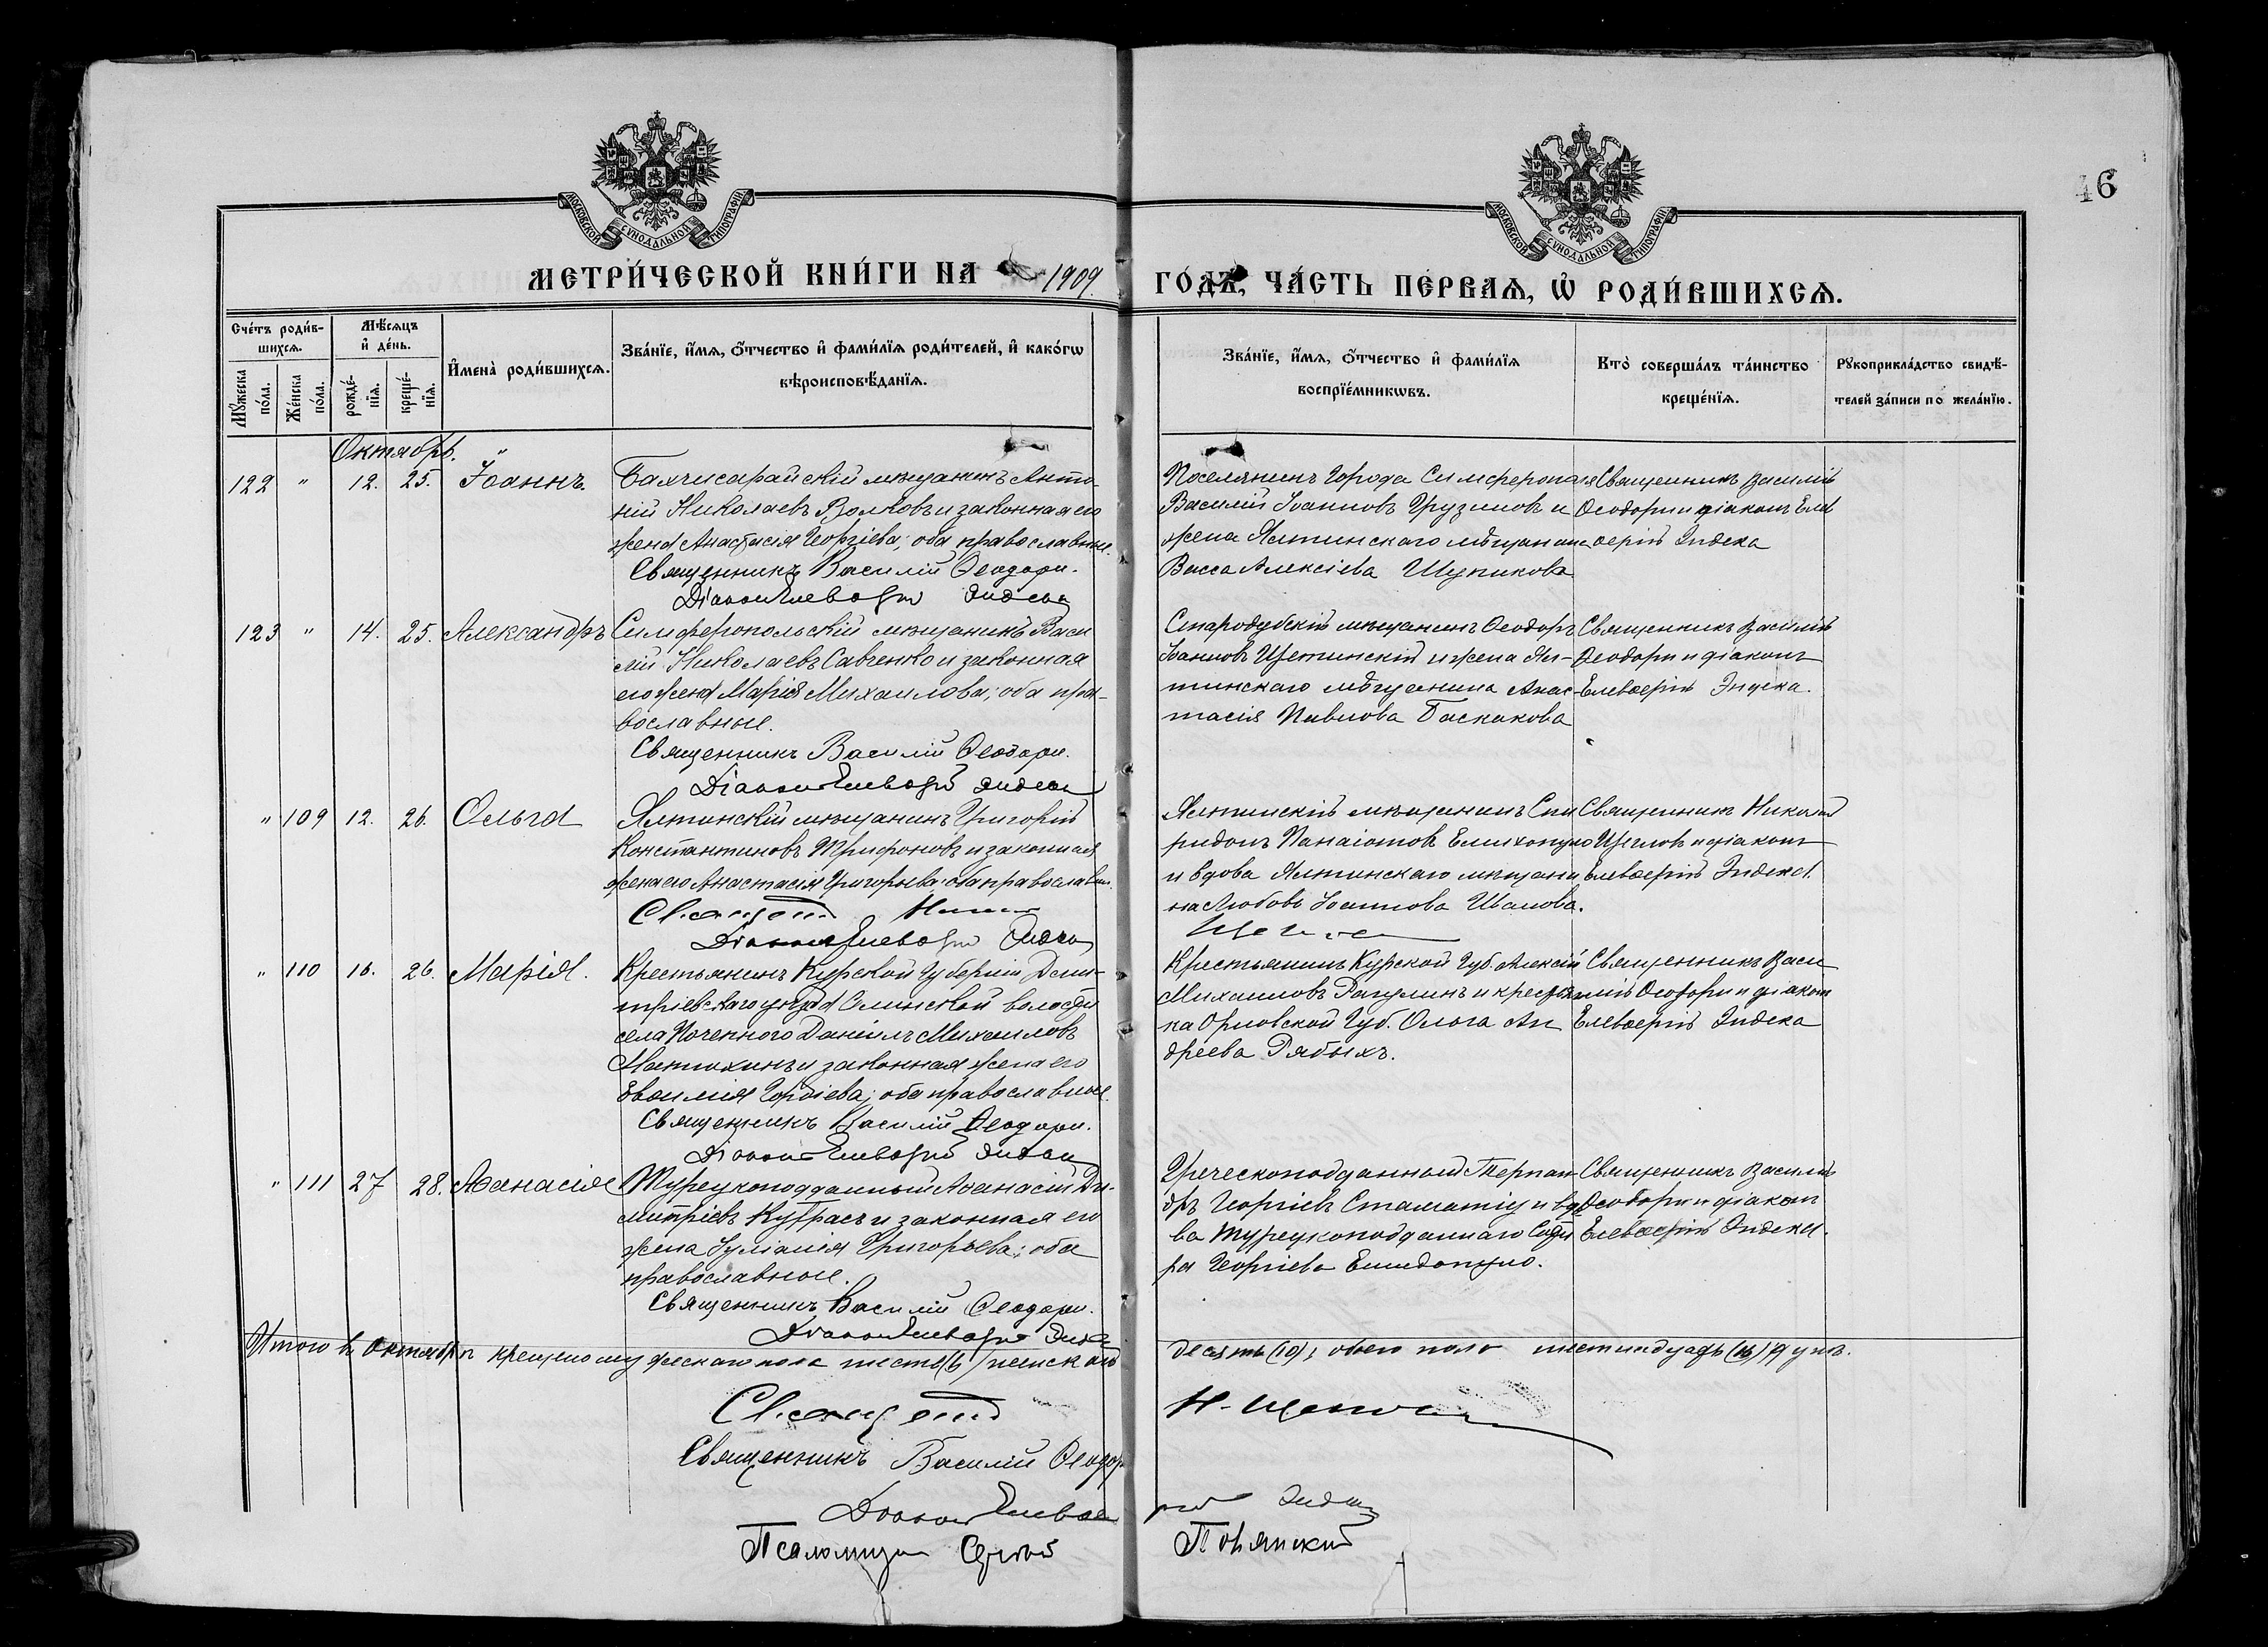 МОСКОВСКОЙ СУНОДАЛЬНОЙ ТИПОГРАФІИ
МОСКОВСКОЙ СУНОДАЛЬНОЙ ТИПОГРАФІИ
46
МЕТРИ́ЧЕСКОЙ КНИ́ГИ НА 1909
ГО́ДЪ, ЧА́СТЬ ПЕ́РВАѦ, Ѡ҆ РОДИ́ВШИХСѦ.
Сче́тъ роди́в-
шихсѧ.
Мѣ́сѧцъ
и҆ де́нь.
Мꙋ́жеска по́ла.
Же́нска по́ла.
рожде́-нїѧ.
креще́-нїѧ.
И҆мена̀ роди́вшихсѧ.
Зва́нїе, и҆́мѧ, ѻ҆́тчество и҆ фами́лїѧ роди́телей, и҆ како́гѡ
вѣроисповѣ́данїѧ.
Зва́нїе, и҆́мѧ, ѻ҆́тчество и҆ фами́лїѧ
воспрїе́мникѡвъ.
Кто̀ соверша́лъ та́инство
креще́нїѧ.
Рꙋкоприкла́дство свидѣ́-
телей за́писи по жела́нїю.
Октябрь.
122 " 12. 25. Іоаннъ.
Бахчисарайскій мѣщанинъ Анто-
ній Николаевъ Волковъ и законная его
жена Анастасія Георгіева; оба православные.
Священникъ Василій Ѳеодори.
Діаконъ Елевѳерій Индека
Поселянинъ города Симферополя
Василій Іоанновъ Грузиновъ и
жена Ялтинскаго мѣщанина
Васса Алексіева Щупикова
Священникъ Василій
Ѳеодори и діаконъ Елев
ѳерій Индека
123 " 14. 25. Александръ
Симферопольскій мѣщанинъ Васи
лій Николаевъ Савченко и законная
его жена Марія Михаилова; оба пра-
вославные.
Священникъ Василій Ѳеодори.
Діаконъ Елевѳерій Индека
Стародубскій мѣщанинъ Ѳеодоръ
Іоанновъ Щетинскій и жена Ял-
тинскаго мѣщанина Анас-
тасія Павлова Баскакова
Священникъ Василій
Ѳеодори и діаконъ
Елевѳерій Индека.
" 109 12. 26. Ольга
Ялтинскій мѣщанинъ Григорій
Константиновъ Трифоновъ и законная
жена его Анастасія Григорьева; оба православн.
Діаконъ Елевѳерій Индека
Ялтинскій мѣщанинъ Спи
ридонъ Панаіотовъ
и вдова Ялтинскаго мѣщани
на Любовь Іоаннова
Священникъ Николай
Щегловъ и діаконъ
Елевѳерій Индека.
" 110 16. 26. Марія.
Крестьянинъ Курской Губерніи Дми-
тріевскаго уѣзда волости
села Даніилъ Михаиловъ
и законная жена его
Евѳимія оба православные.
Священникъ Василій Ѳеодори.
Діаконъ Елевѳерій Индека
Крестьянинъ Курской Губ. Алексій
Михаиловъ и крестьян
ка Орловской Губ. Ольга Ан
дреева Рябыхъ.
Священникъ Васи
лій Ѳеодори и діаконъ
Елевѳерій Индека
" 111 27 28. Аѳанасія
Турецкоподданный Аѳанасій Ди-
митріевъ и законная его
жена Іуліанія Григорьева; оба
православные.
Священникъ Василій Ѳеодори.
Діаконъ Елевѳерій Индека
Греческоподданный
Георгіевъ Стаматіу и вдо
ва Турецкоподданнаго
ра Георгіева
Священникъ Василій
Ѳеодори и діаконъ
Елевѳерій Индека.
Итого въ Октябрѣ крещено мужескаго пола шесть (6) женскаго
десять (10), обоего пола шестнадцать (16) душъ.
Священникъ Василій Ѳеодори
Діаконъ Елевѳерій Индека
Псаломщикъ Сергѣй